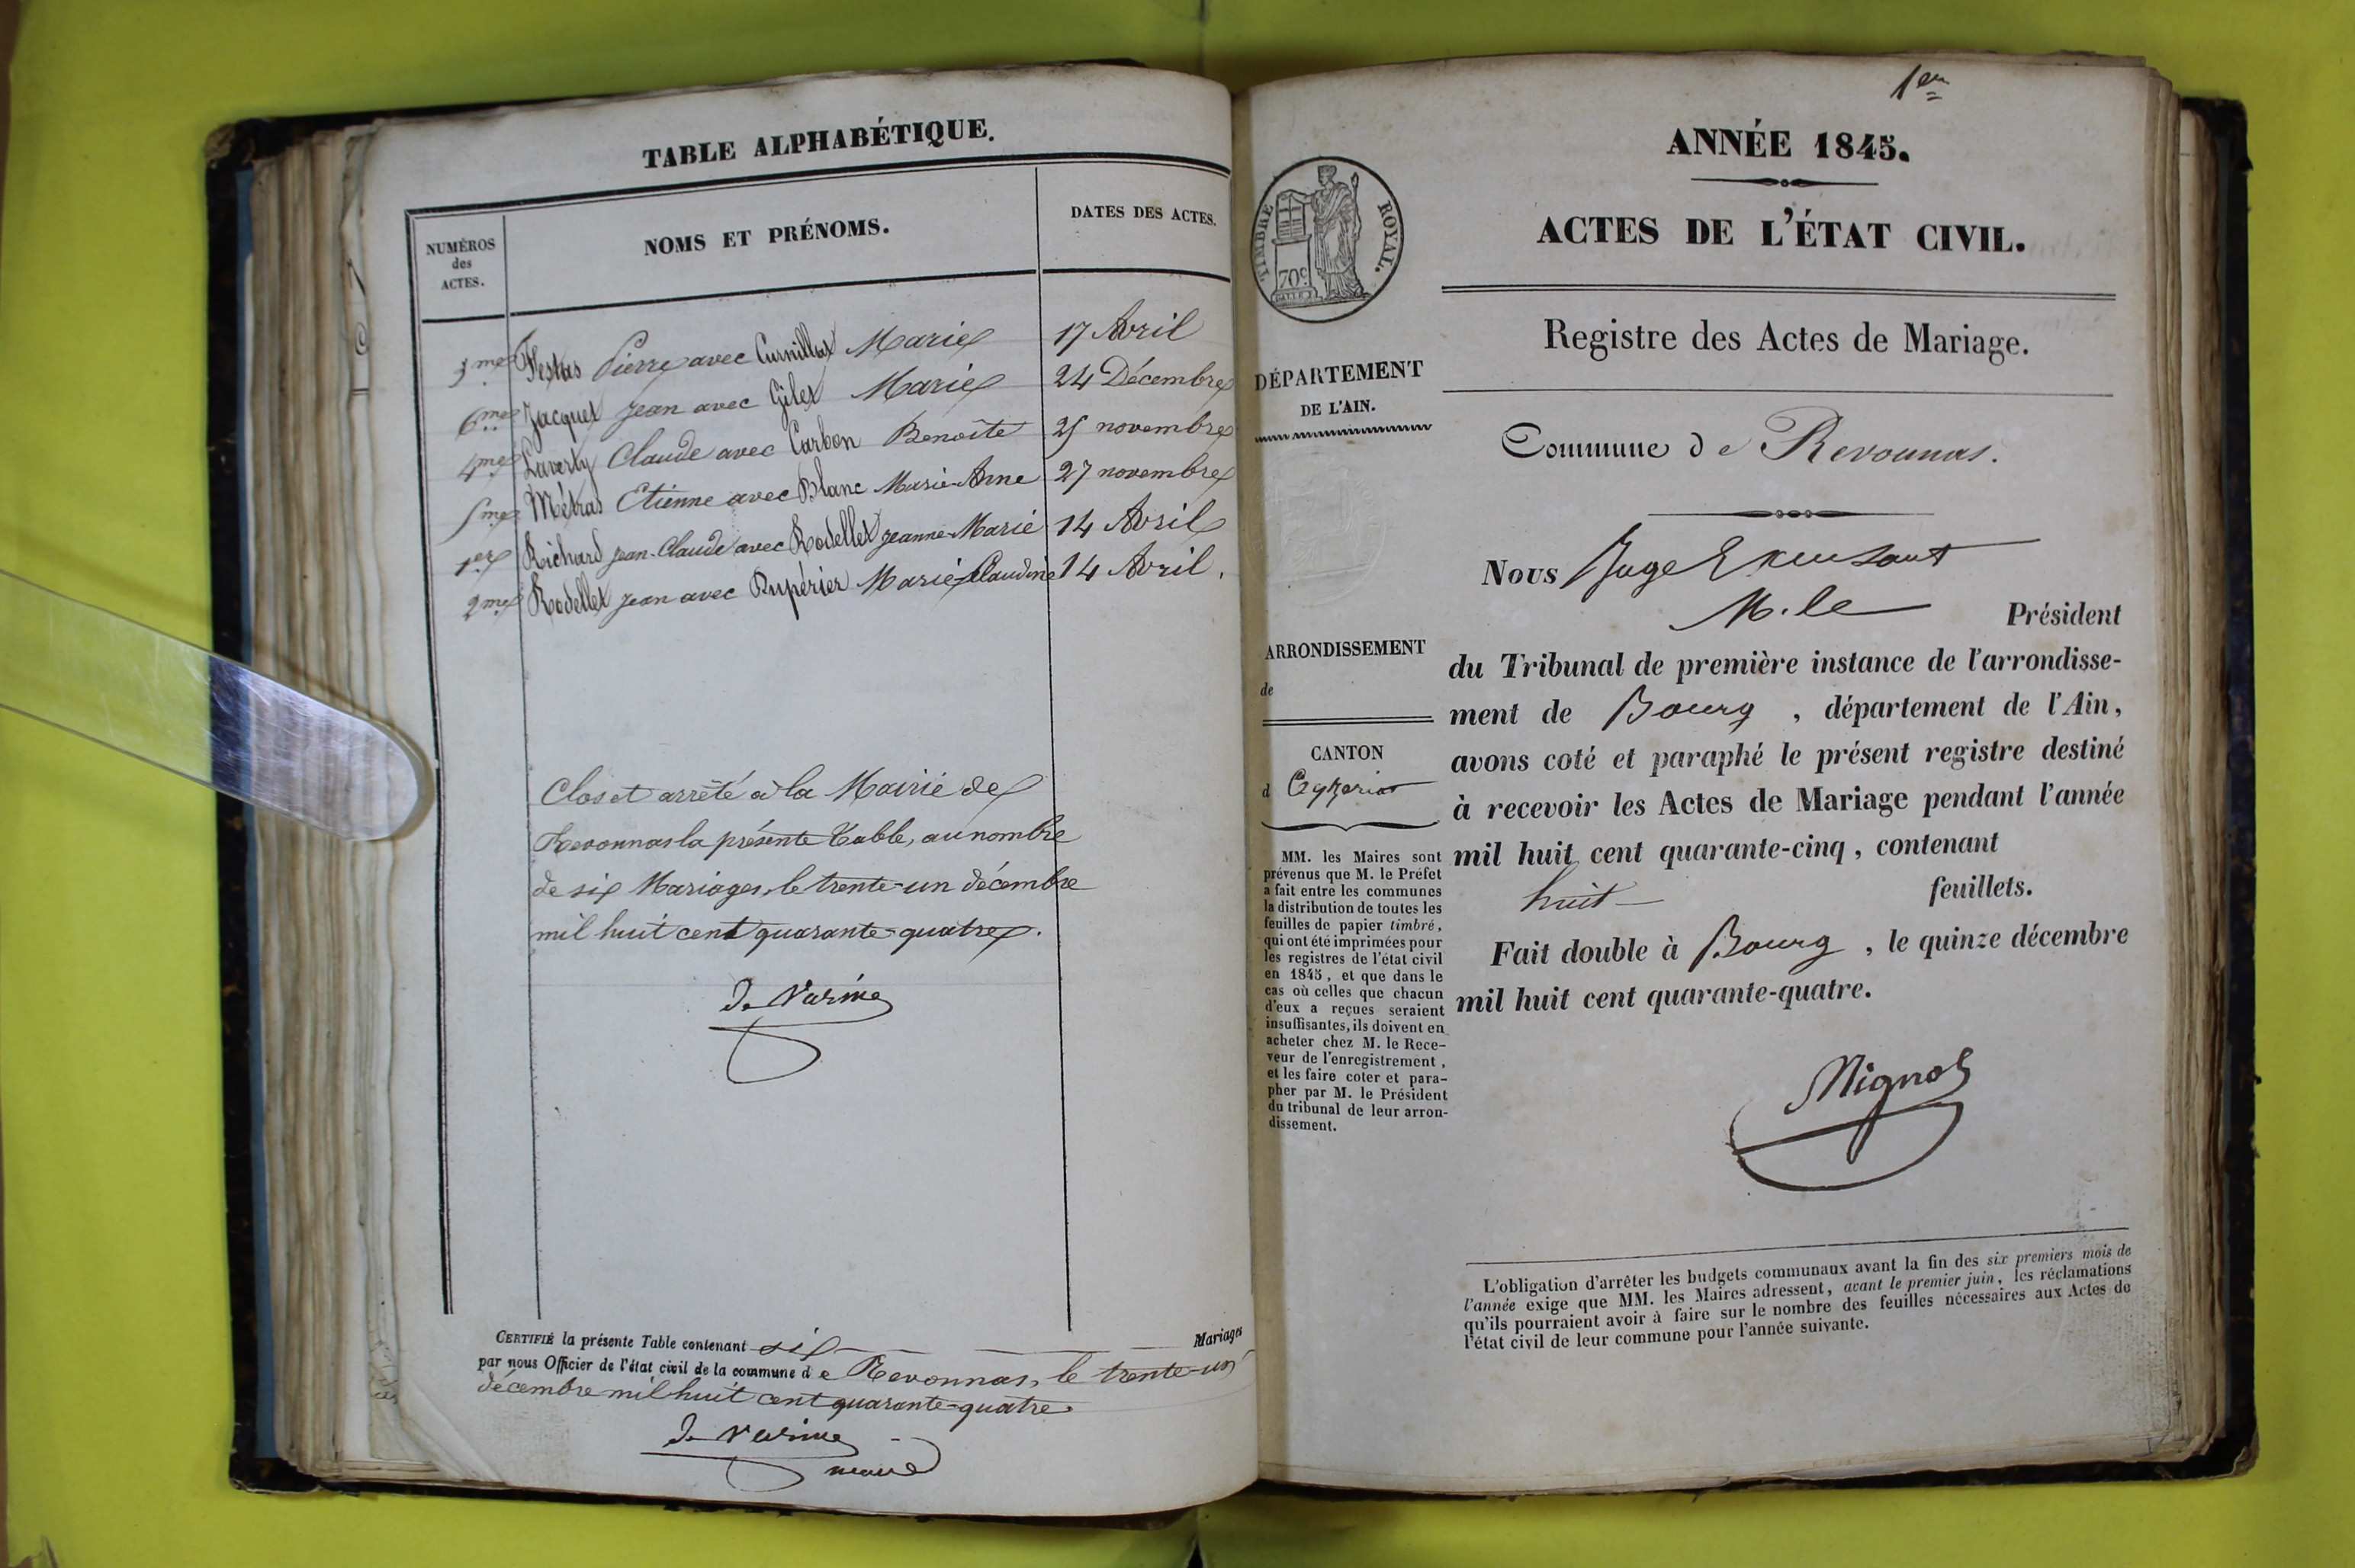 TABLE ALPHABÉTIQUE.
NUMÉROS
des
ACTES.
NOMS ET PRÉNOMS.
DATES DES ACTES.
3me Pierre avec Marie 17 Avril
6me Jacquet Jean avec Gilet Marie 24 Décembre
4me Claude avec Carbon Benoîte 25 novembre
5me Métras Etienne avec Blanc Marie-Anne 27 novembre
1er Richard Jean-Claude avec Rodellet Jeanne-Marie 14 Avril
2me Rodellet Jean avec Dupérier Marie Claudine 14 Avril.
Clos et arrêté à la Mairie de
Revonnas la présente Table, au nombre
de six Mariages, le trente-un décembre
mil huit cent quarante-quatre.
CERTIFIÉ la présente Table contenant six Mariages
par nous Officier de l'état civil de la commune de Revonnas, le trente-un
décembre mil huit cent quarante-quatre.
maire
1er
ANNÉE 1845.
ACTES DE L'ÉTAT CIVIL.
TIMBRE ROYAL.
70c
Registre des Actes de Mariage.
DÉPARTEMENT
DE L'AIN.
Commune de Revonnas.
Nous Juge
M. le Président
ARRONDISSEMENT
de
CANTON
d Ceyzeriat
du Tribunal de première instance de l'arrondisse-
ment de Bourg, département de l'Ain,
avons coté et paraphé le présent registre destiné
à recevoir les Actes de Mariage pendant l'année
mil huit cent quarante-cinq, contenant
huit feuillets.
Fait double à Bourg, le quinze décembre
mil huit cent quarante-quatre.
MM. les Maires sont
prévenus que M. le Préfet
a fait entre les communes
la distribution de toutes les
feuilles de papier timbré,
qui ont été imprimées pour
les registres de l'état civil
en 1845, et que dans le
cas où celles que chacun
d'eux a reçues seraient
insuffisantes, ils doivent en
acheter chez M. le Rece-
veur de l'enregistrement,
et les faire coter et para-
pher par M. le Président
du tribunal de leur arron-
dissement.
L'obligation d'arrêter les budgets communaux avant la fin des six premiers mois de
l'année exige que MM. les Maires adressent, avant le premier juin, les réclamations
qu'ils pourraient avoir à faire sur le nombre des feuilles nécessaires aux Actes de
l'état civil de leur commune pour l'année suivante.